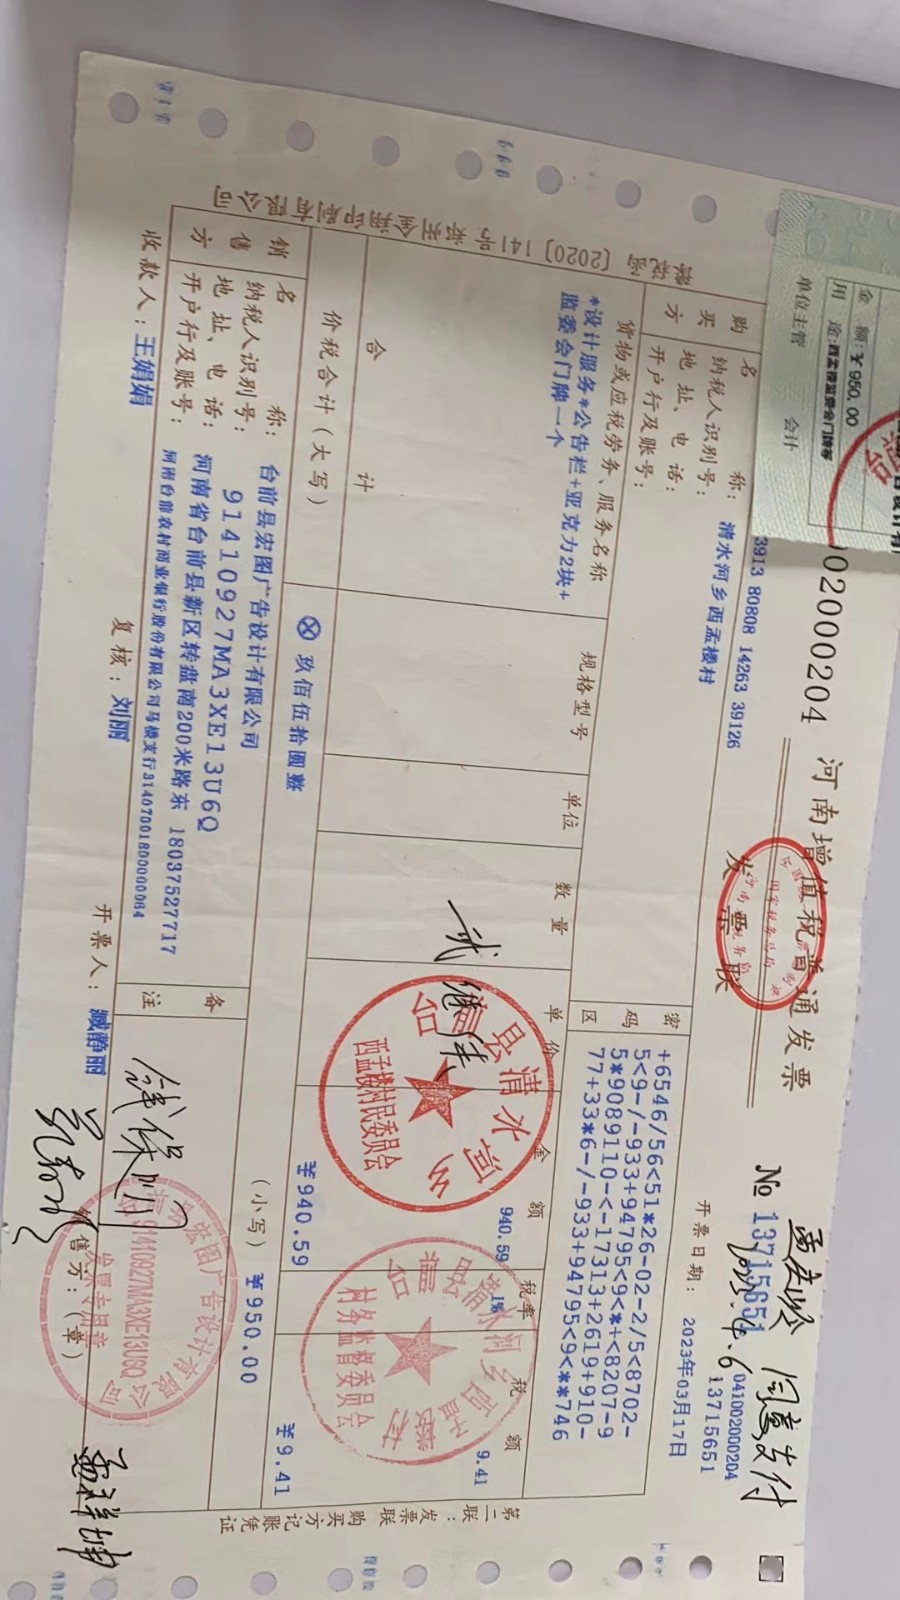 金 额:¥950.00
用 途:西孟楼监委会门牌等
单位主管 会计
河南增值税普通发票
发票联
№ 13715651
041002000204
13715651
开票日期: 2023年03月17日
同意支付
2023.4.6
3913 80808 14263 39126
购买方
名 称: 清水河乡西孟楼村
纳税人识别号:
地址、电话:
开户行及账号:
密码区
+6546/56<51*26-02-2/5<8702-
5<9-/-933+94795<9<*+<8207-9
5*9089110-<-17313+2619+910-
77+33*6-/-933+94795<9<**746
货物或应税劳务、服务名称 规格型号 单位 数量 单价 金额 税率 税额
*设计服务*公告栏+亚克力2块+ 940.59 1% 9.41
监委会门牌一个
合 计 ¥940.59 ¥9.41
价税合计(大写) ⊗玖佰伍拾圆整 (小写) ¥950.00
销售方
名 称: 台前县宏图广告设计有限公司
纳税人识别号: 91410927MA3XE13U6Q
地址、电话: 河南省台前县新区转盘南200米路东 18037527717
开户行及账号: 河南台前农村商业银行股份有限公司马楼支行31407001800000064
备注
收款人:王娟娟 复核:刘丽 开票人:臧静丽 销售方:(章)
第二联:发票联 购买方记账凭证
税总函 [2020] 141号
印刷有限公司
台前县清水河乡
西孟楼村民委员会
村务监督委员会
91410927MA3XE13U6Q
发票专用章